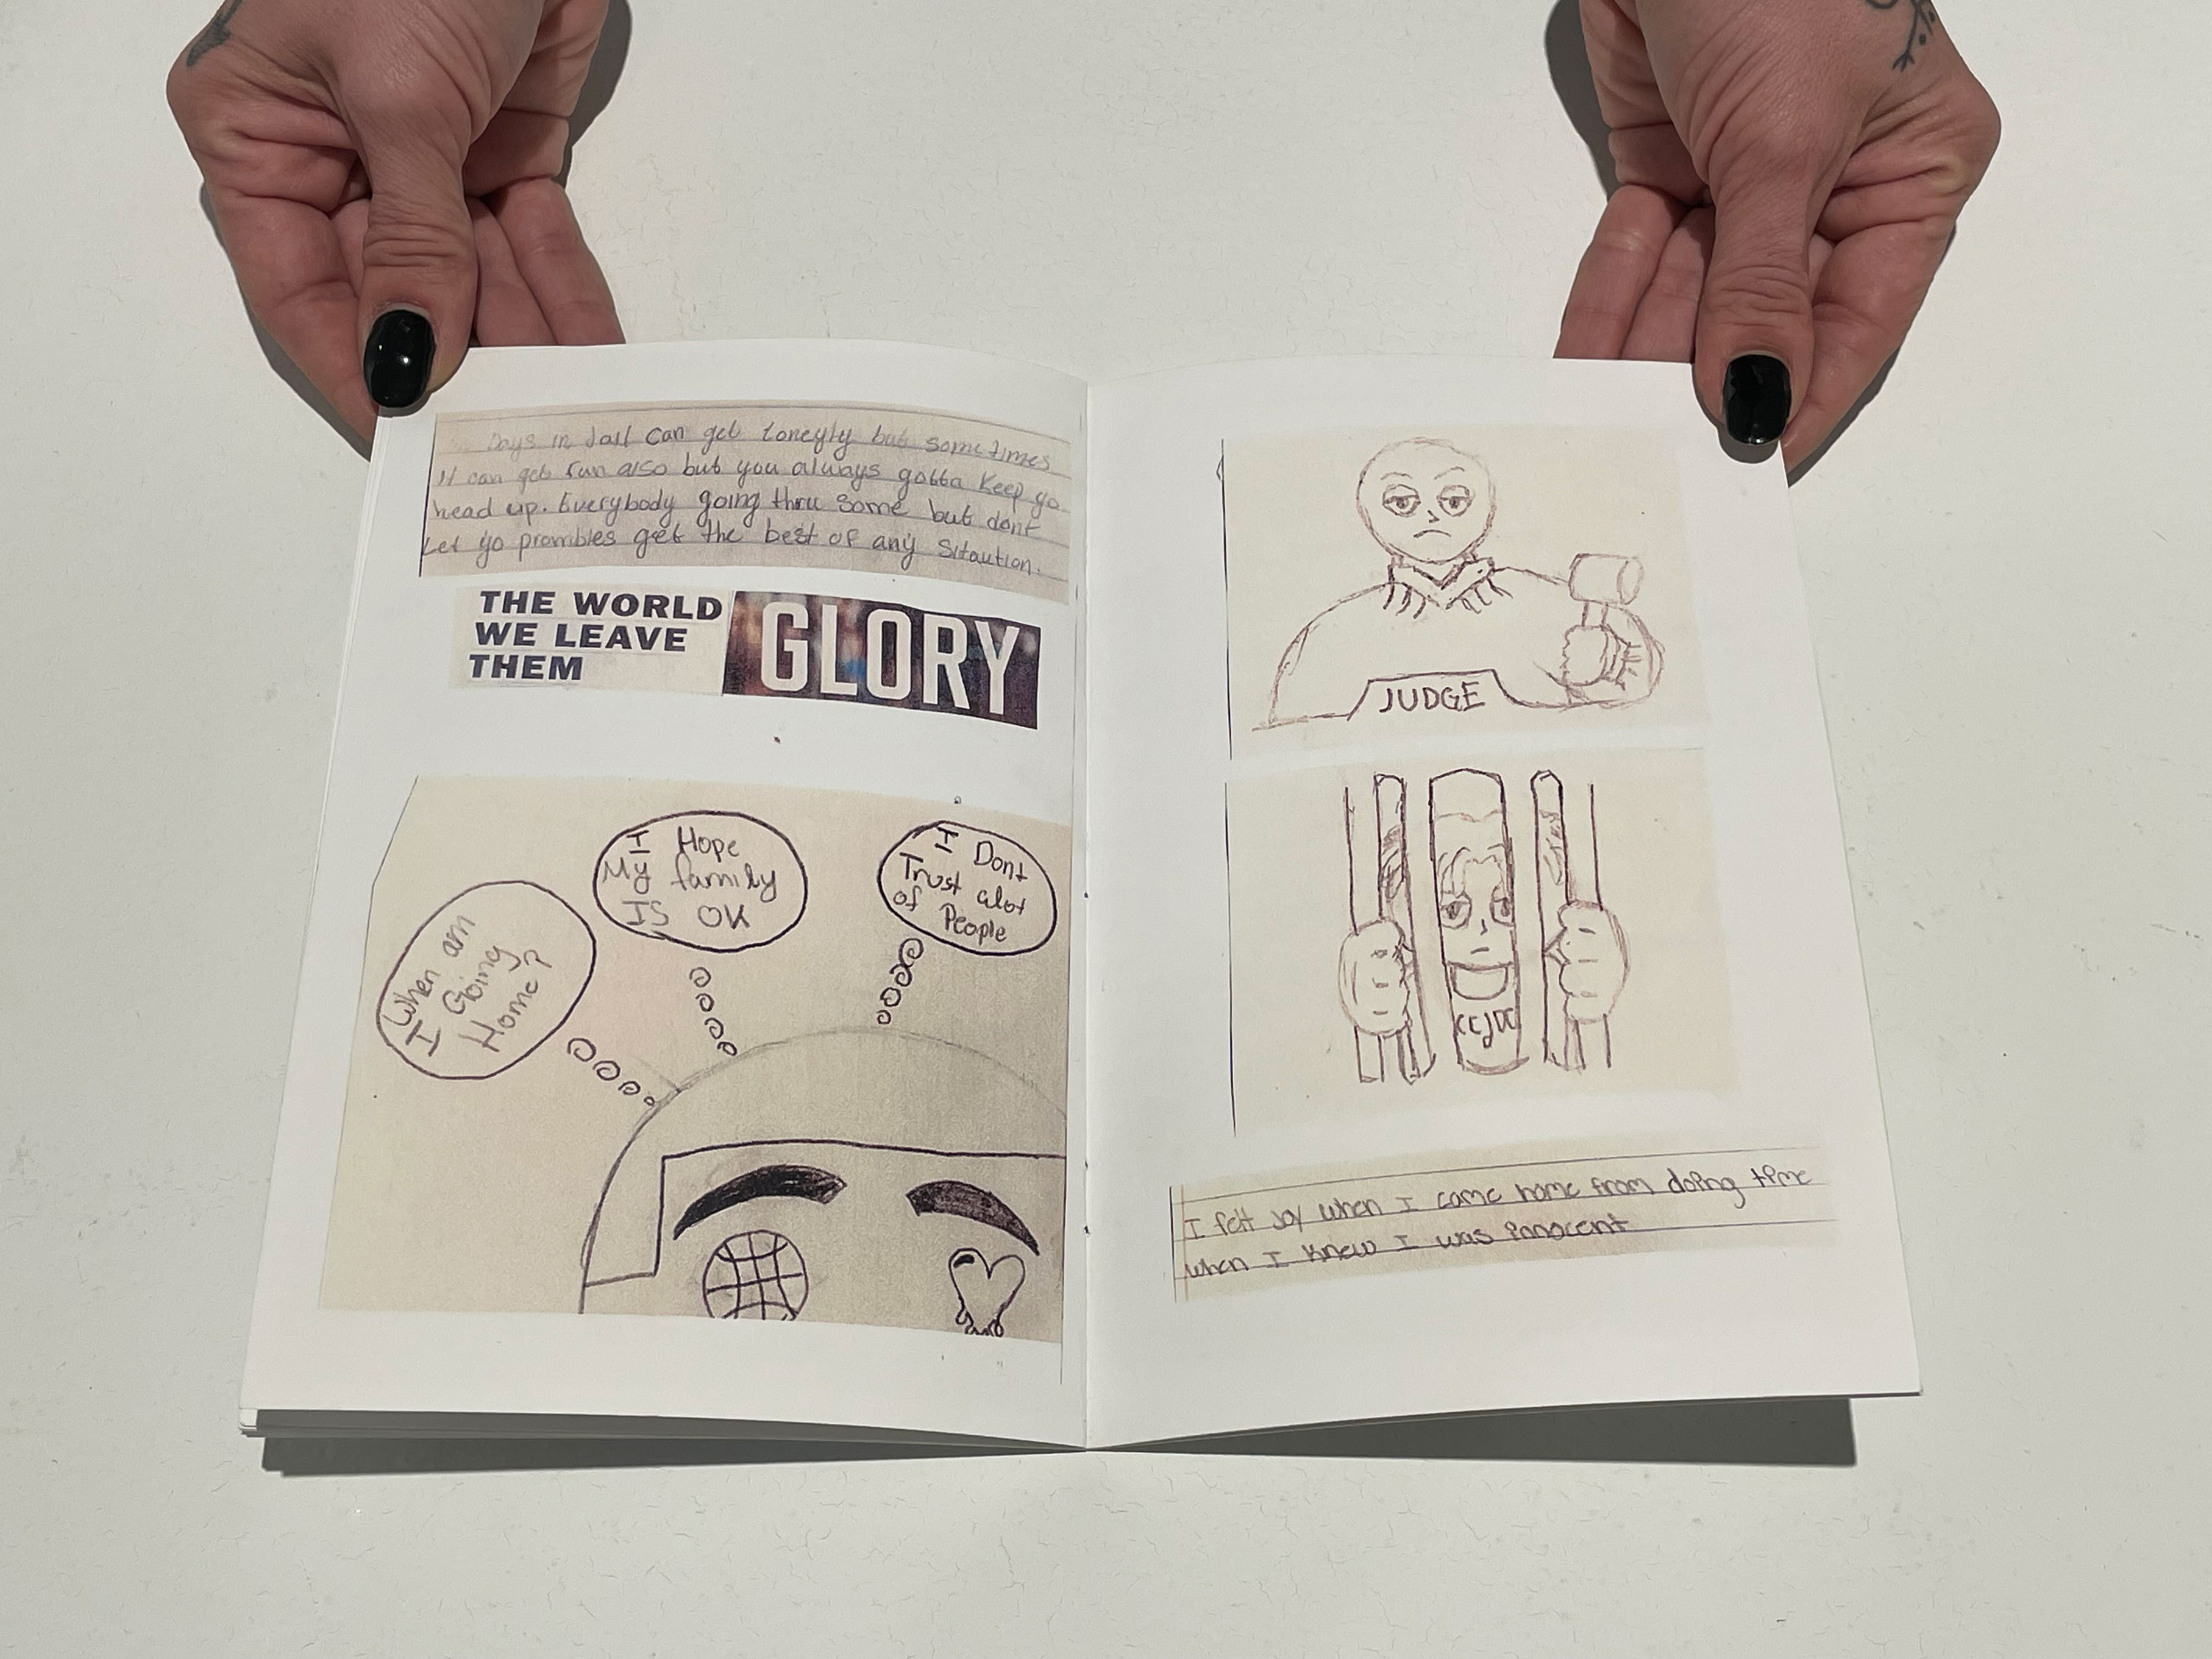 Days in Jail can get loneyly but sometimes
It can get fun also but you always gotta keep yo
head up. Everybody going thru some but dont
Let yo prombles get the best of any Sitaution.
THE WORLD
WE LEAVE
THEM
GLORY
When am
I Going
Home?
I Hope
My family
IS OK
I Dont
Trust alot
of People
JUDGE
CCJDC
I felt Joy when I came home from doing time
when I knew I was innocent